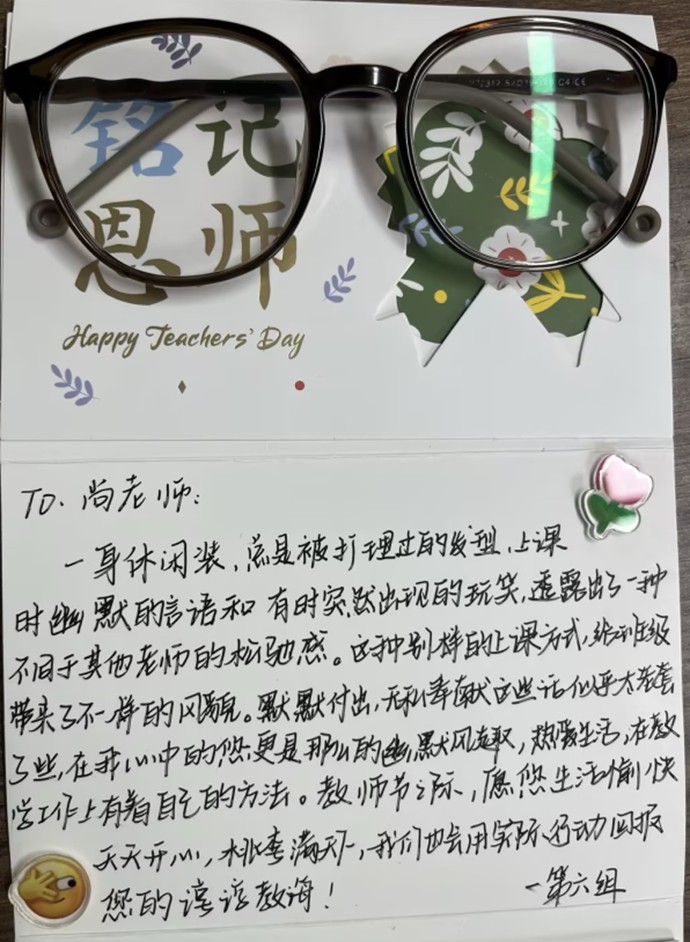 铭记
恩师
Happy Teachers' Day
TO. 尚老师：
一身休闲装，总是被打理过的发型，上课
时幽默的言语和有时突然出现的玩笑，透露出了一种
不同于其他老师的松弛感。这种别样的上课方式，给班级
带来了不一样的风貌。默默付出，无私奉献这些话似乎太老套
了些，在我心中的您更是那么的幽默风趣，热爱生活，在教
学工作上有着自己的方法。教师节之际，愿您生活愉快
天天开心，桃李满天下，我们也会用实际行动回报
您的谆谆教诲！
一第六组